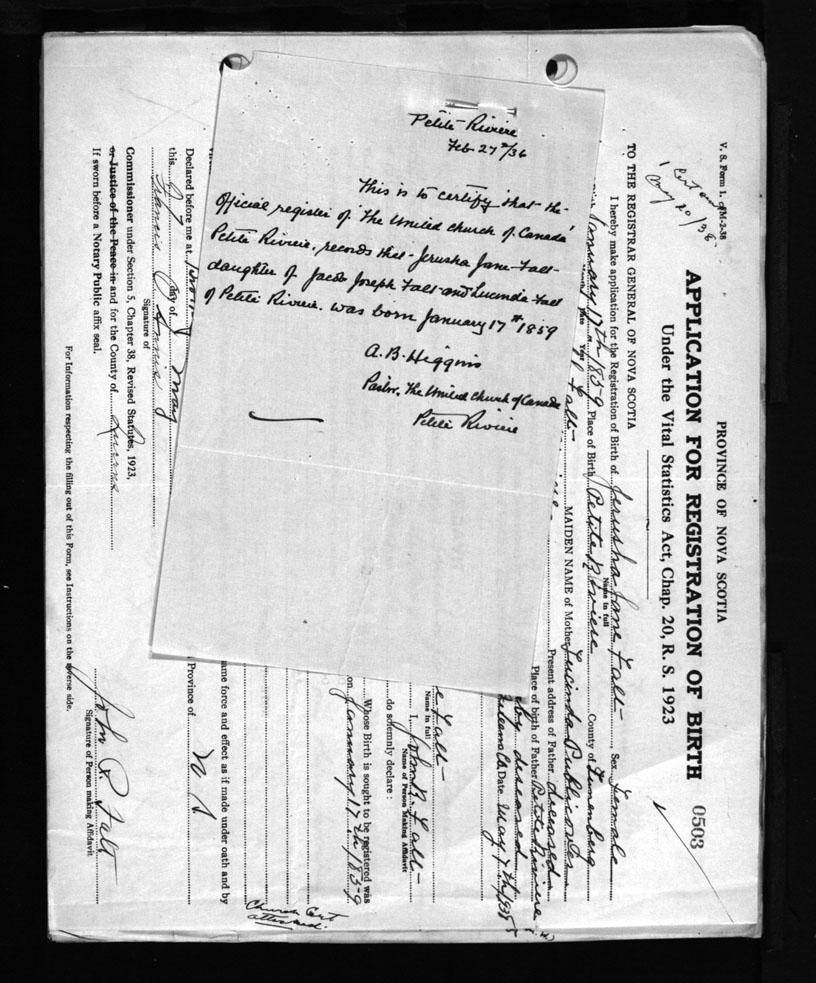 Petite Riviere
Feb 27th/36
This is to certify that the
Official register of The United church of Canada
Petite Riviere, records that Jerusha Jane Falt
daughter of Jacob Joseph Falt and Lucinda Falt
of Petite Riviere, was born January 17th 1859
A. B. Higgins
Pastor, The United church of Canada
Petite Riviere
V. S. Form 1.
1 Cert
Aug 20/38
PROVINCE OF NOVA SCOTIA
APPLICATION FOR REGISTRATION OF BIRTH 0503
Under the Vital Statistics Act, Chap. 20, R. S. 1923
TO THE REGISTRAR GENERAL OF NOVA SCOTIA
I hereby make application for the Registration of Birth of Jerusha Jane Falt Sex Female
Name in full
January 17th 1859 Place of Birth Petite Riviere County of Lunenburg
Date Year
Falt MAIDEN NAME of Mother Lucinda
Present address of Father deceased
Place of birth of Father Petite Riviere
deceased
Date May 7th
Falt
Name in full
I, John R. Falt
Name of Person Making Affidavit
do solemnly declare:
Whose Birth is sought to be registered was
on January 17th 1859
Church Cert
attached.
same force and effect as if made under oath and by
Province of N S
Declared before me at
this 7 day of May
Francis
Signature of
Commissioner under Section 5, Chapter 38, Revised Statutes, 1923,
or Justice of the Peace in and for the County of
If sworn before a Notary Public affix seal.
John R. Falt
Signature of Person making Affidavit
For Information respecting the filling out of this Form, see Instructions on the reverse side.